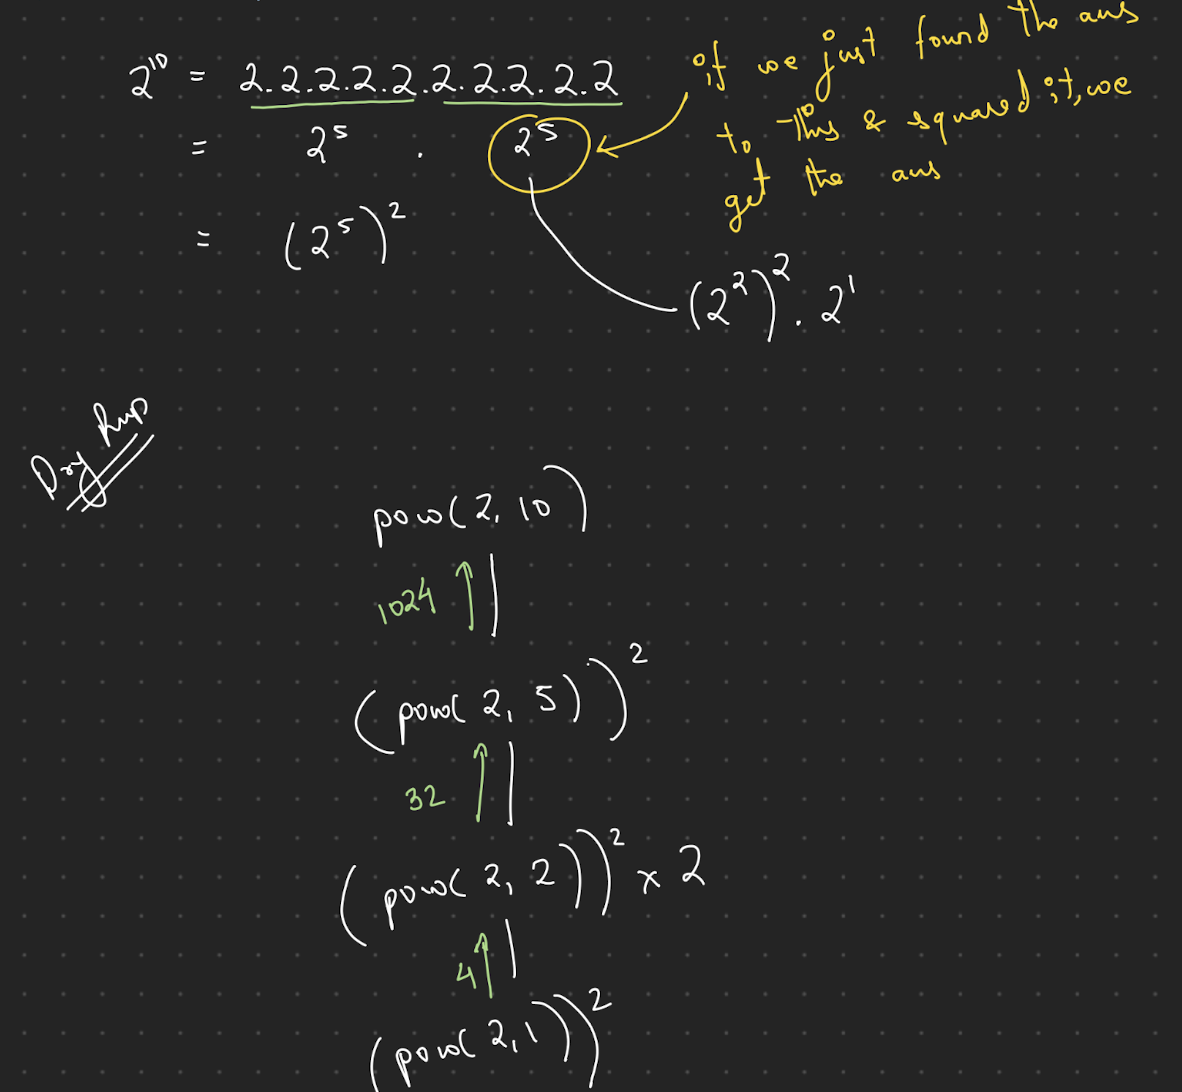 2¹⁰ = 2.2.2.2.2.2.2.2.2.2
= 2⁵ . 2⁵
= (2⁵)²
if we just found the ans
to this & squared it, we
get the ans
(2²)² . 2¹
Dry Run
pow(2, 10)
1024
(pow(2, 5))²
32
(pow(2, 2))² x 2
4
(pow(2, 1))²